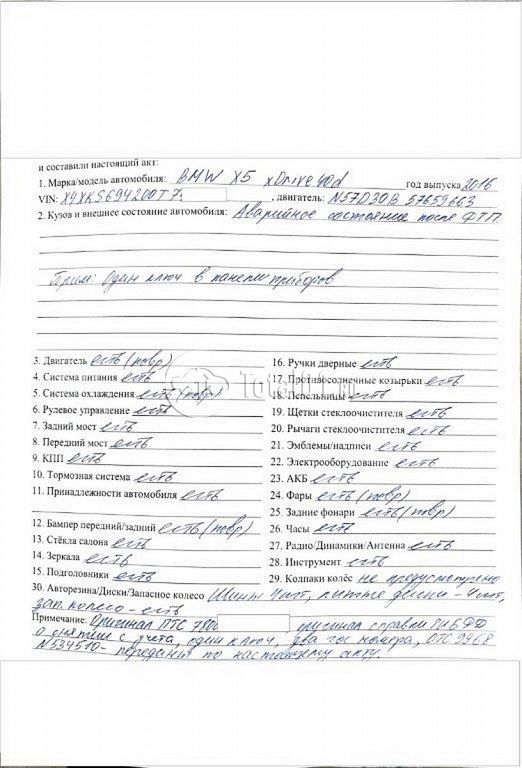 и составили настоящий акт:
1. Марка/модель автомобиля: BMW X5 xDrive40d год выпуска 2016
VIN: X4XKS694200T7 , двигатель: N57D30B 57659663
2. Кузов и внешнее состояние автомобиля: Аварийное состояние после ДТП.
Прим: Один ключ в панели приборов
3. Двигатель есть (повр)
4. Система питания есть
5. Система охлаждения есть (повр)
6. Рулевое управление есть
7. Задний мост есть
8. Передний мост есть
9. КПП есть
10. Тормозная система есть
11. Принадлежности автомобиля есть
12. Бампер передний/задний есть (повр)
13. Стёкла салона есть
14. Зеркала есть
15. Подголовники есть
16. Ручки дверные есть
17. Противосолнечные козырьки есть
18. Пепельницы есть
19. Щетки стеклоочистителя есть
20. Рычаги стеклоочистителя есть
21. Эмблемы/надписи есть
22. Электрооборудование есть
23. АКБ есть
24. Фары есть (повр)
25. Задние фонари есть (повр)
26. Часы есть
27. Радио/Динамики/Антенна есть
28. Инструмент есть
29. Колпаки колёс не предусмотрено
30. Авторезина/Диски/Запасное колесо Шины 4шт, литые диски - 4шт,
зап. колесо - есть
Примечание: Оригинал ПТС 78 , оригинал справки
о снятии с учета, один ключ, два гос номера,
N534510 - переданы по настоящему акту.
Total01.ru